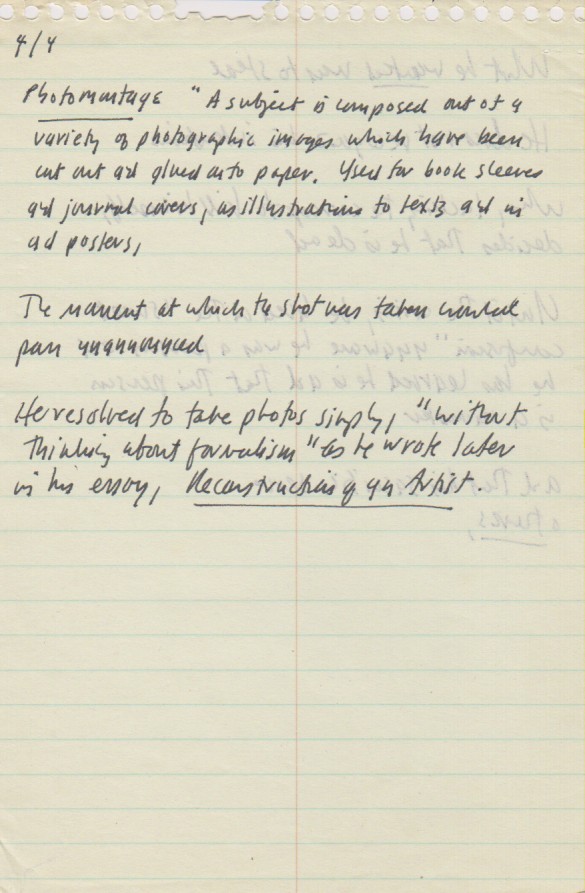 4/4
Photomontage "A subject is composed out of a
variety of photographic images which have been
cut out and glued onto paper. Used for book sleeves
and journal covers, as illustrations to texts and in
ad posters,
The moment at which the shot was taken would
pass unannounced
He resolved to take photos simply, "without
thinking about formalism" as he wrote later
in his essay, Reconstruction of an Artist.